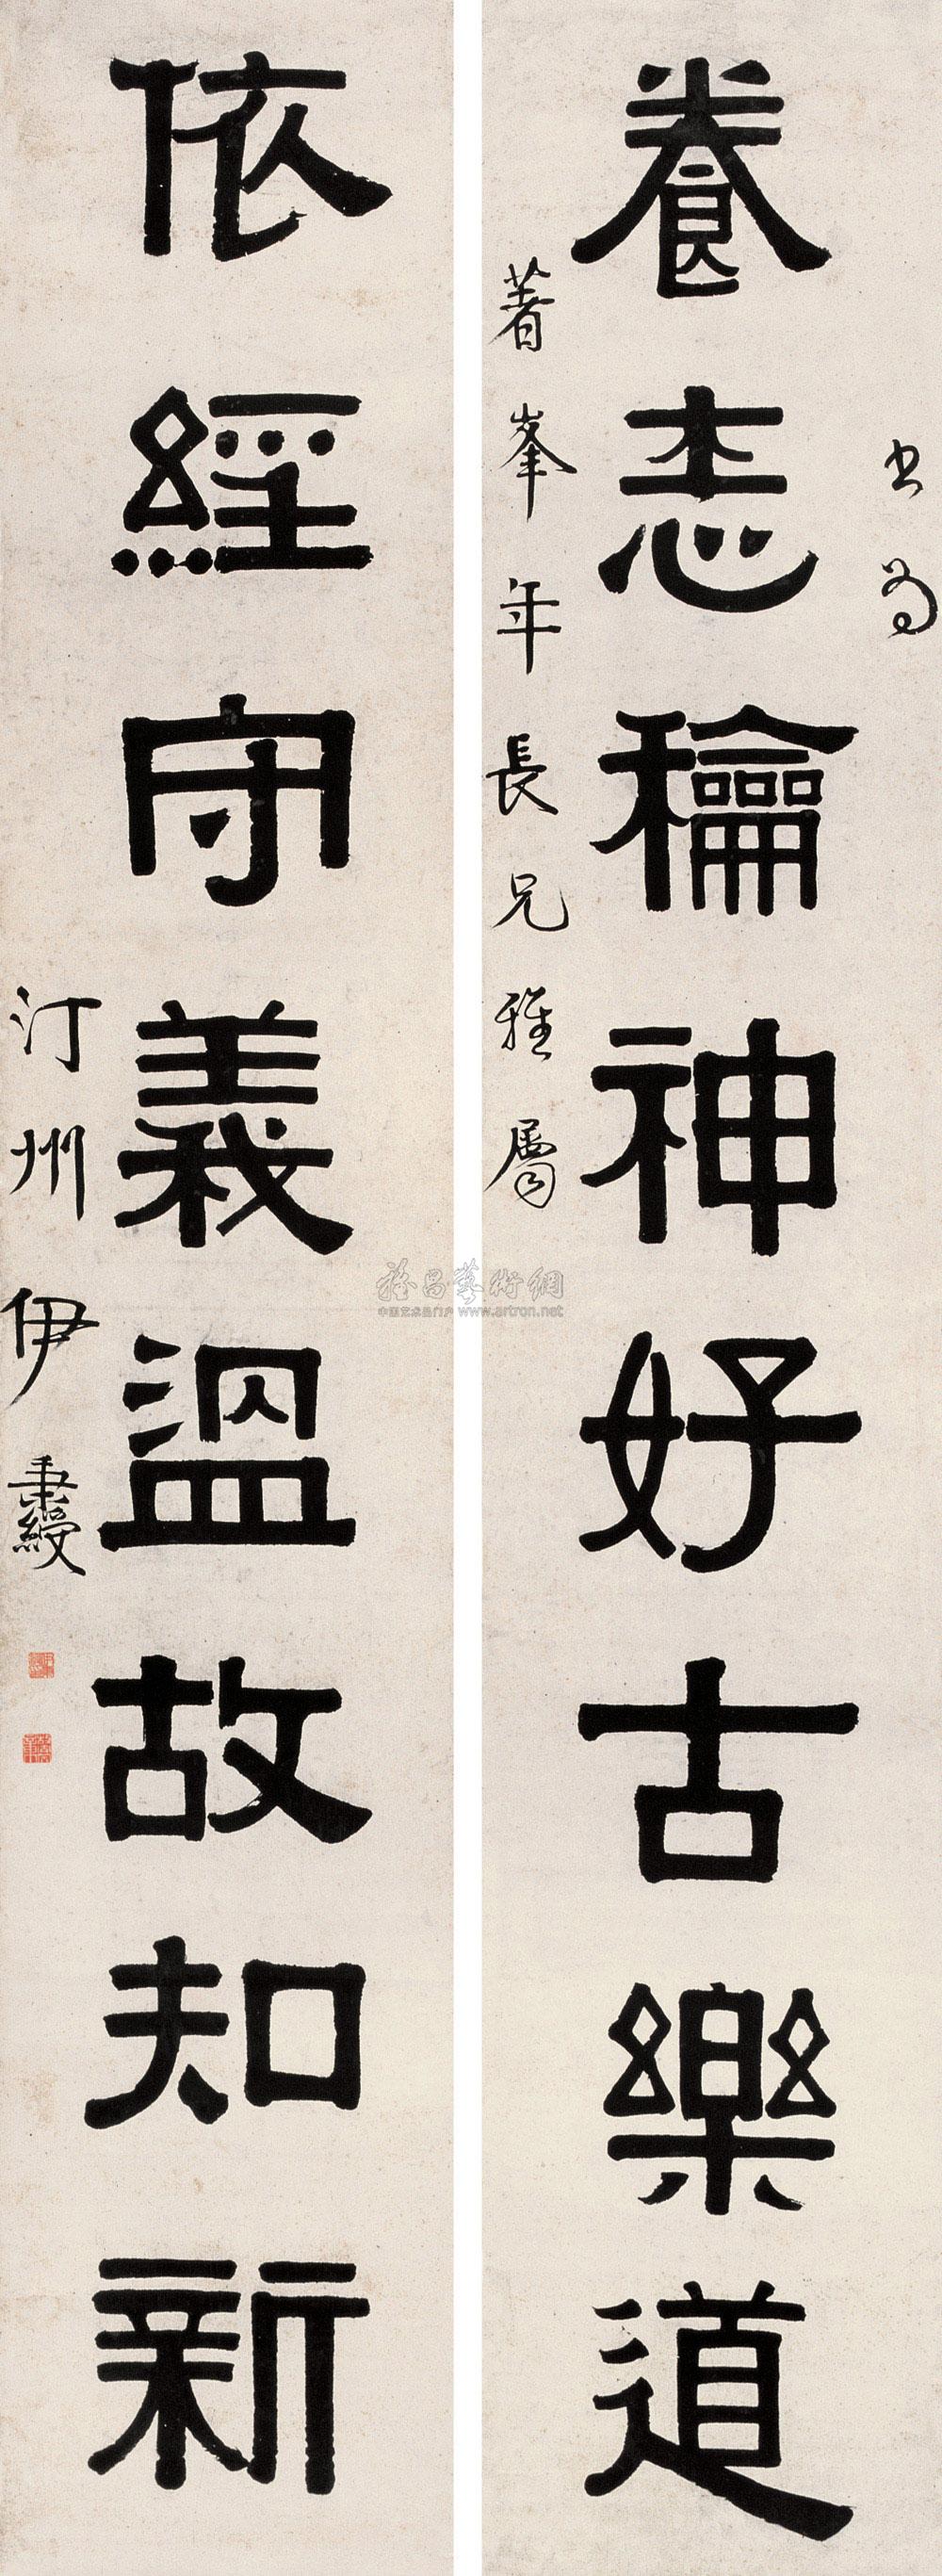 書為
養志龢神好古樂道
著峯年長兄雅屬
依經守義溫故知新
汀州伊秉綬
雅昌藝術網
中国艺术品门户 www.artron.net